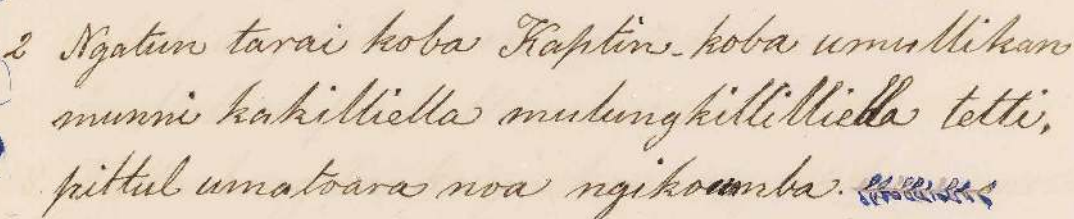 2 Ngatun tarai koba Kaptin-koba umullikan
munni kakilliella mulungkillilliella tetti,
pittul umatoara noa ngikoumba.